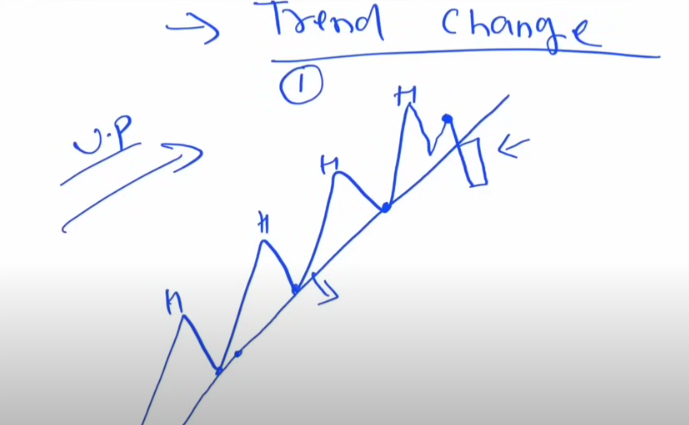 → Trend Change
①
U.P
H
H
H
H